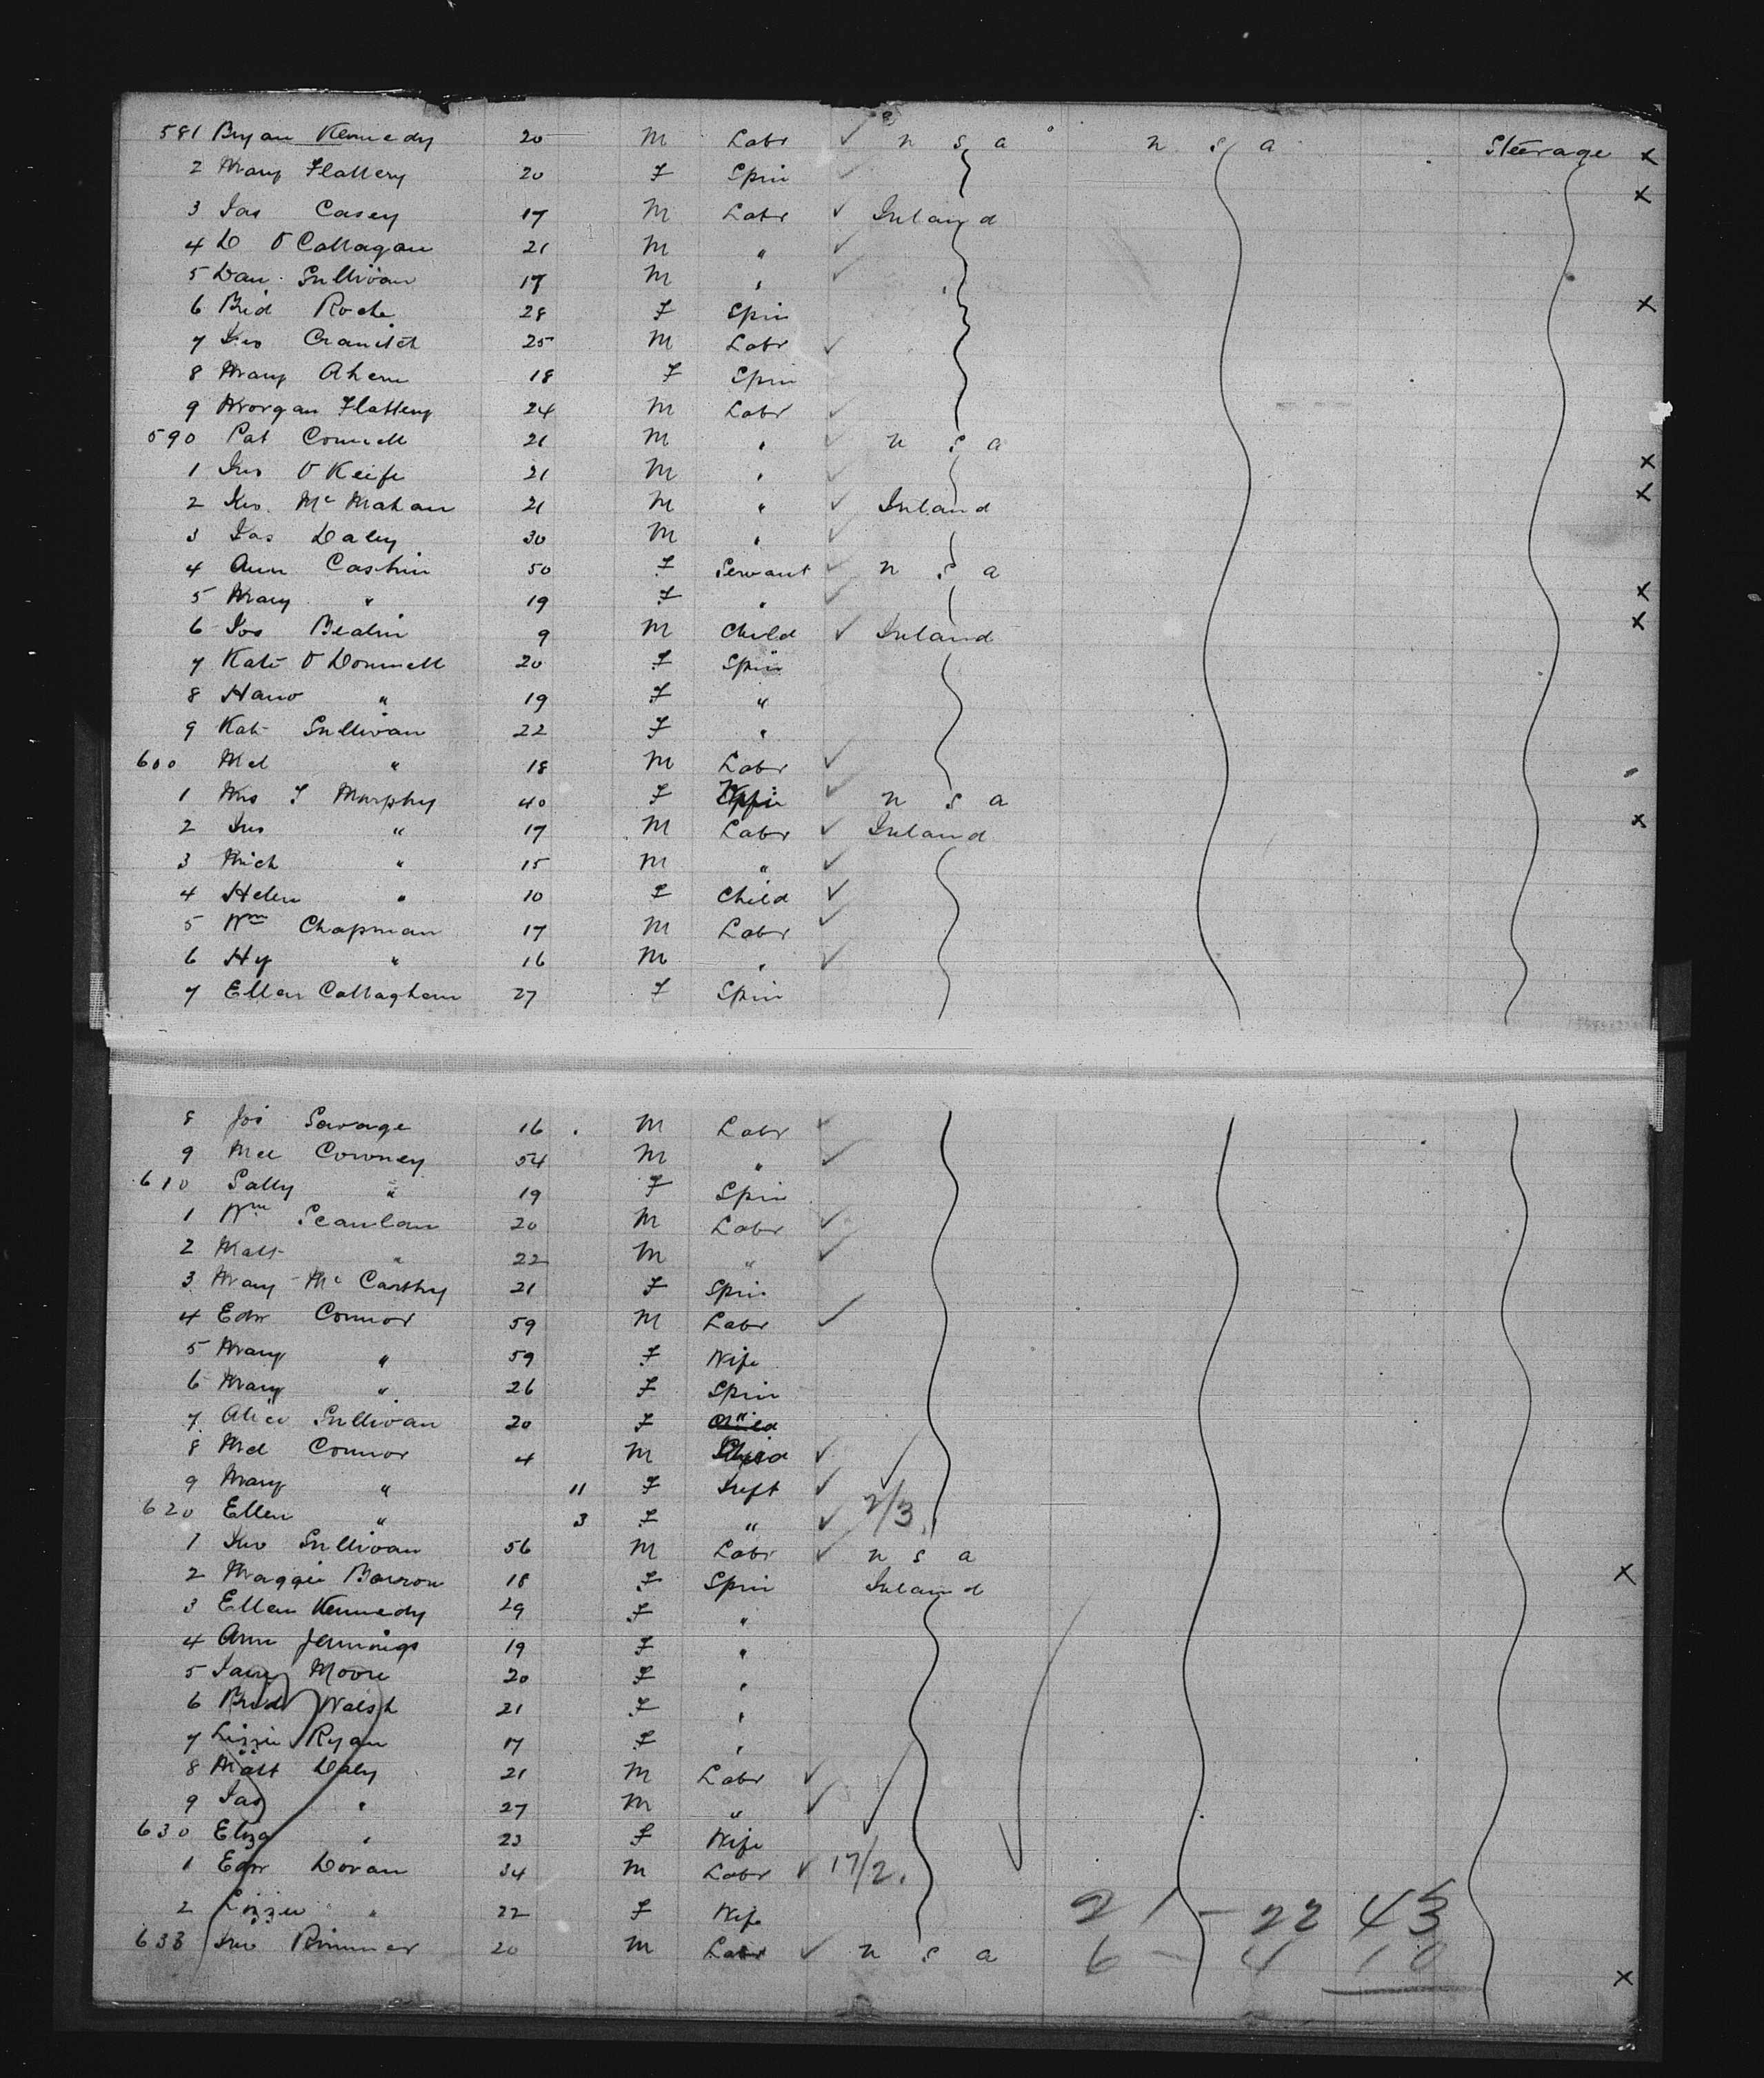 581 Bryan Kennedy 20 M Labr ✓ n s a n s a Steerage x
2 Mary Flattery 20 F Spin ✓ x
3 Jas Casey 17 M Labr ✓ Ireland
4 D O Callagan 21 M " ✓
5 Dan Sullivan 17 M " ✓
6 Brid Roche 28 F Spin x
7 Jno Cranitch 25 M Labr ✓
8 Mary Ahern 18 F Spin
9 Morgan Flattery 24 M Labr ✓
590 Pat Connell 21 M " ✓ n s a
1 Jno O Keife 21 M " ✓ x
2 Jno. Mc Mahan 21 M " ✓ Ireland x
3 Jas Daley 30 M " ✓
4 Ann Cashin 50 F Servant ✓ n s a
5 Mary " 19 F " ✓ x
6 Jos 9 M Child ✓ Ireland x
7 Kate O Donnell 20 F Spin
8 Hano " 19 F "
9 Kate Sullivan 22 F "
600 Mcl " 18 M Labr ✓
1 Mrs J Murphy 40 F ✓ n s a
2 Jno " 17 M Labr ✓ Ireland x
3 Mich " 15 M " ✓
4 Helen " 10 F Child ✓
5 Wm Chapman 17 M Labr ✓
6 Hy " 16 M " ✓
7 Ellen Callaghan 27 F Spin
8 Jos Savage 16 M Labr ✓
9 Mcl Cowney 54 M " ✓
610 Sally " 19 F Spin
1 Wm Scanlan 20 M Labr ✓
2 Matt " 22 M " ✓
3 Mary Mc Carthy 21 F Spin
4 Edw Connor 59 M Labr ✓
5 Mary " 59 F Wife
6 Mary " 26 F Spin
7 Alice Sullivan 20 F "
8 Mcl Connor 4 M Child ✓
9 Mary " 11 F Inft ✓
620 Ellen " 3 F " ✓ 2/3
1 Jno Sullivan 56 M Labr ✓ n s a
2 Maggie Barron 18 F Spin Ireland x
3 Ellen Kennedy 29 F "
4 Ann Jennings 19 F "
5 Jane Moore 20 F "
6 Brid Walsh 21 F "
7 Lizzie Ryan 17 F "
8 Matt Daly 21 M Labr ✓
9 Jas " 27 M " ✓
630 Eliza " 23 F Wife
1 Edw Doran 34 M Labr ✓ 17/2.
2 Lizzie " 22 F Wife 21 - 22 43
633 Jno Rimmer 20 M Labr ✓ n s a 6 - 4 10 x